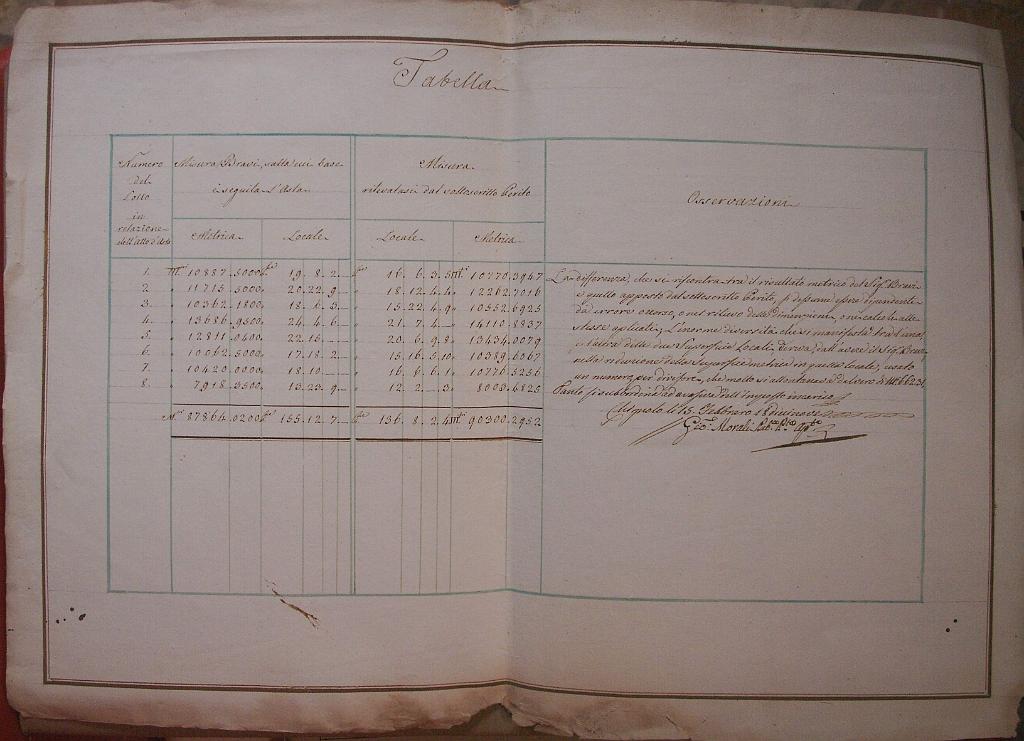 Tabella
Numero
del
Lotto
in
relazione
dell'Atto d'Asta
Misura Bravi, sulla cui base
è seguita l'Asta
Misura
rilevatasi dal sottoscritto Perito
Osservazioni
Metrica Locale Locale Metrica
1. 10887.5000 19.8.2 16.6.3.5 10770.3947
2. 11715.5000 20.22.9 18.12.4.4 12262.7016
3. 10362.1800 18.6.3 15.22.4.9 10552.6925
4. 13686.9500 24.4.6 21.7.4 14110.8837
5. 12811.0400 22.15 20.6.9.8 13434.0079
6. 10062.5000 17.18.2 15.16.5.10 10389.6067
7. 10420.0000 18.10 16.6.6.1 10776.5256
8. 7918.3500 13.23.9 12.2.3 8003.4825
87864.0200 155.12.7 136.8.2.4 90300.2952
La differenza, che si riscontra tra il risultato metrico del Sig. Bravi
e quello apposto dal sottoscritto Perito, si dessume essere dipendente
da errore occorso, o nel rilievo delle dimensioni, o ne' calcoli alle
stesse applicati; L'enorme diversità che si manifesta tra l'una,
e l'altra delle due Superficie Locali, deriva dall'avere il Sig. Bravi
nella riduzione della Superficie metrica in quella locale, usato
un numero per divisore, che molto si allontana dal vero di 662.31
Tanto si subordina ad evasione dell'ingiunto incarico
li 15 Febbraio
Morali